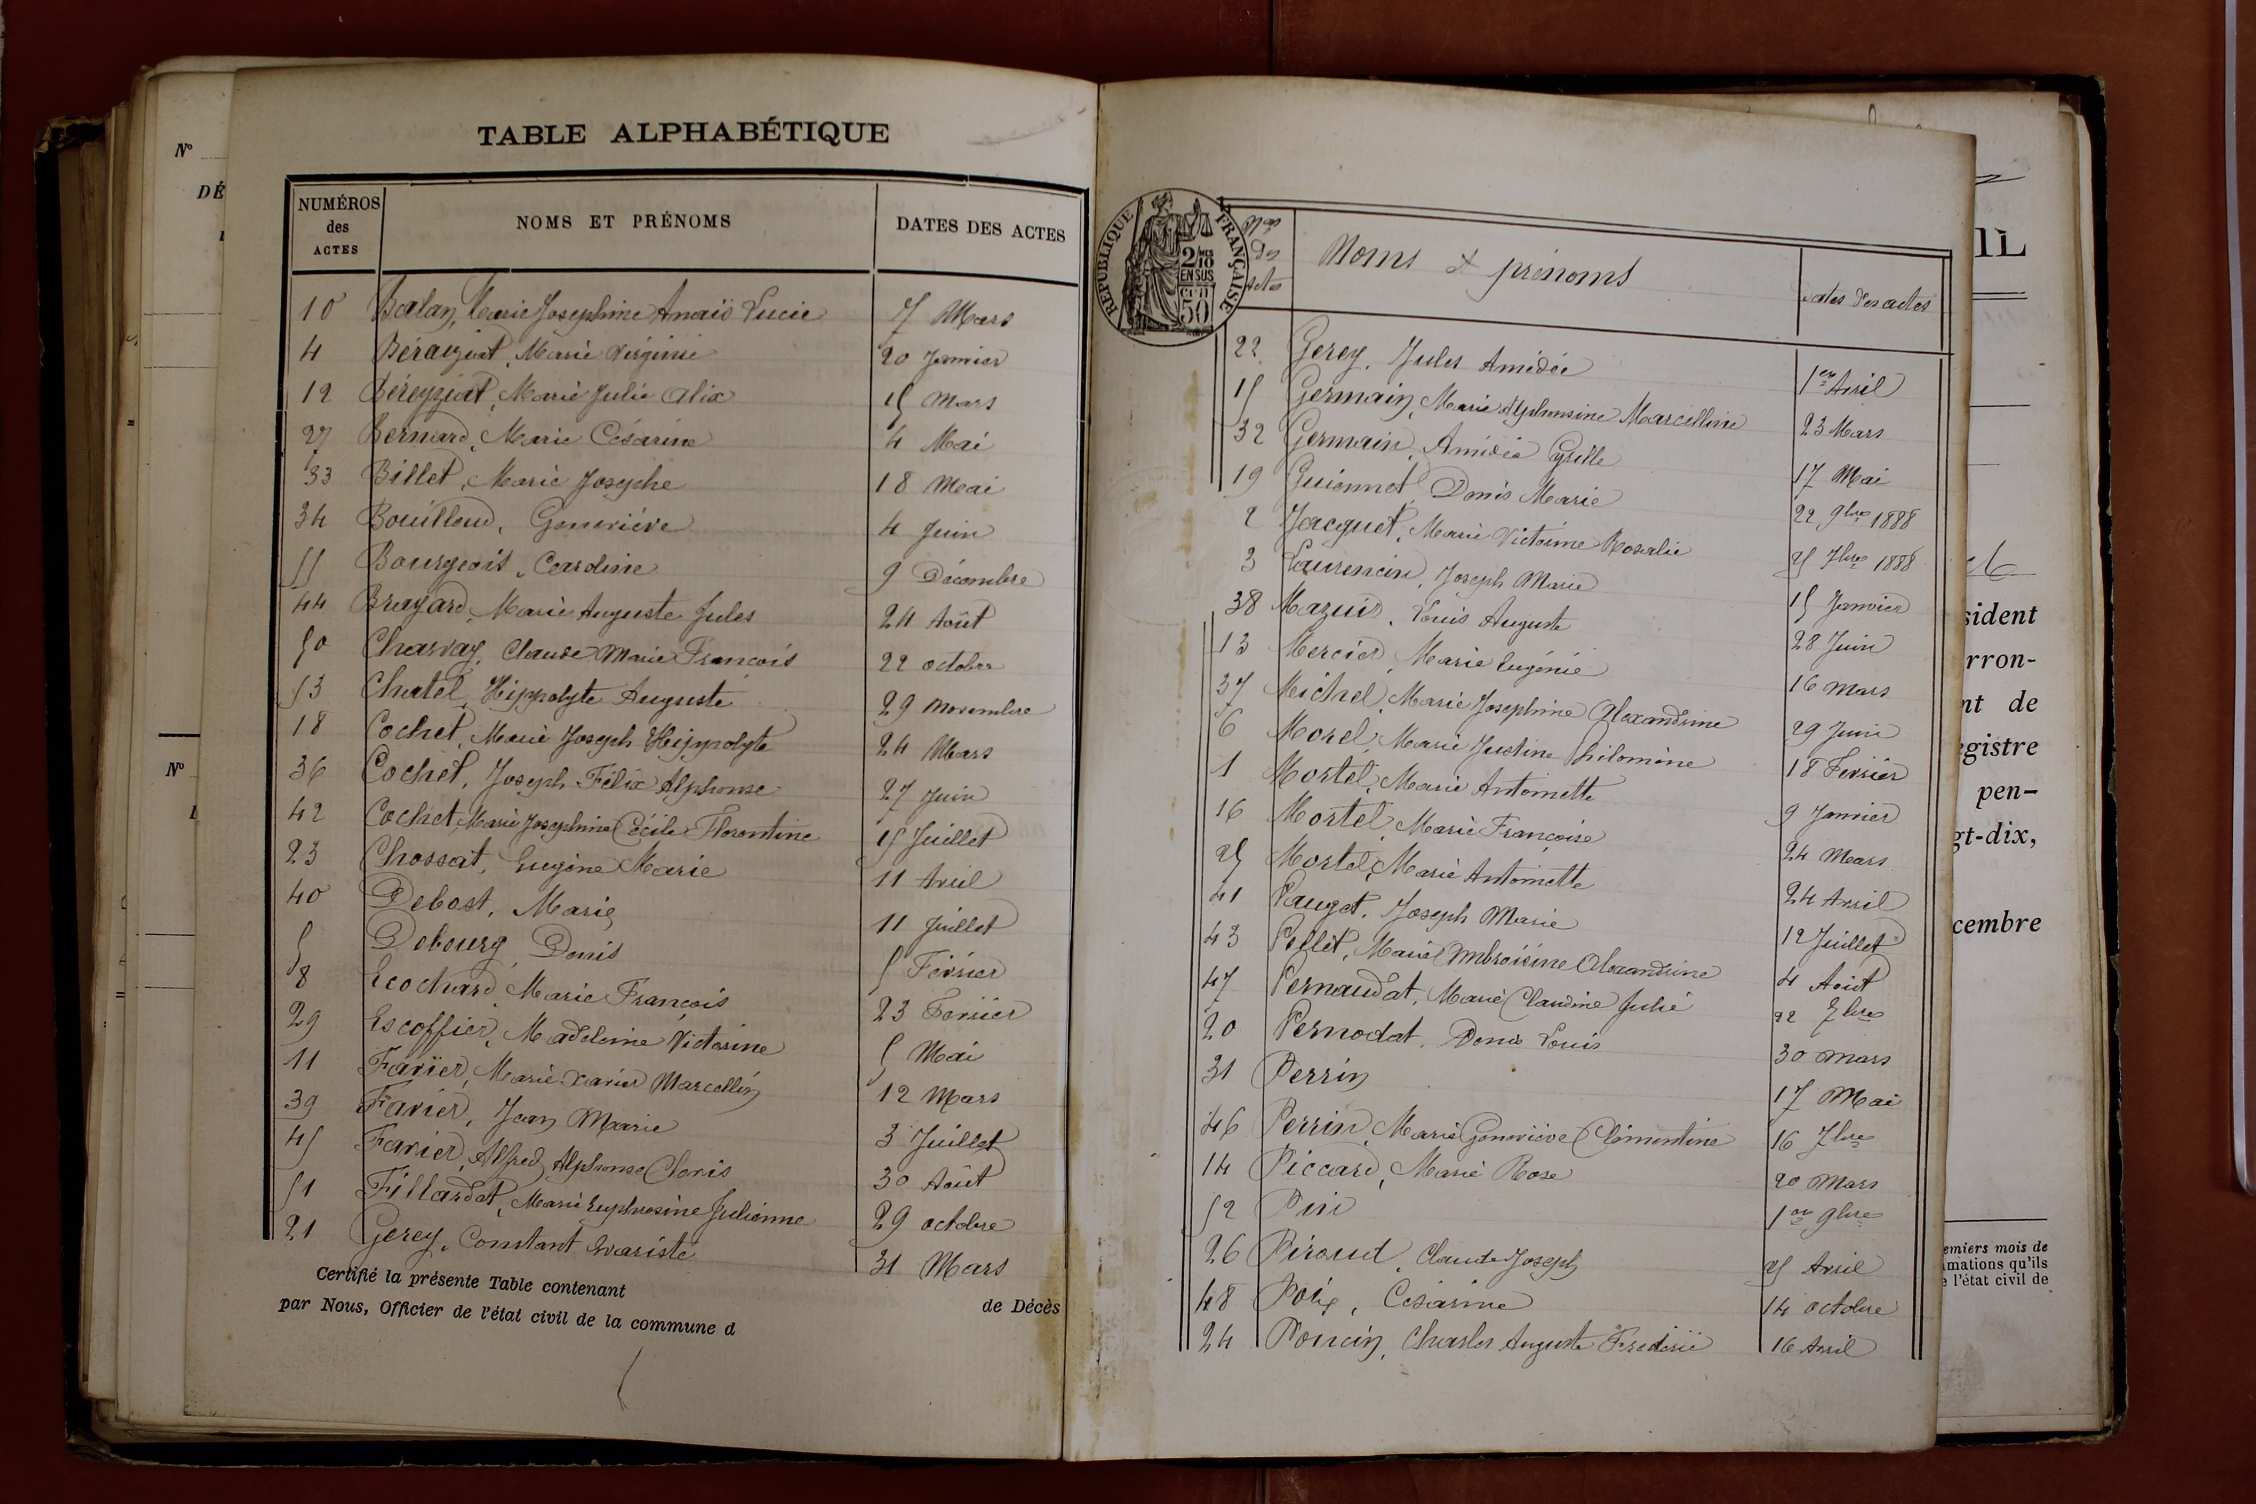 TABLE ALPHABÉTIQUE
NUMÉROS des ACTES NOMS ET PRÉNOMS DATES DES ACTES
10 Balan, Marie Josephine Anaïs Lucie 7 Mars
4 Béraiziat, Marie Virginie 20 Janvier
12 Béreyziat, Marie Julie Alix 15 Mars
27 Bernard, Marie Césarine 4 Mai
33 Billet, Marie Josephe 18 Mai
34 Bouilloud, Geneviève 4 Juin
55 Bourgeois, Caroline 9 Décembre
44 Brayard, Marie Auguste Jules 24 Août
50 Charvay, Claude Marie François 22 octobre
53 Chatel, Hippolyte Auguste 29 Novembre
18 Cochet, Marie Joseph Hippolyte 24 Mars
36 Cochet, Joseph Félix Alphonse 27 Juin
42 Cochet, Marie Josephine Cécile Florentine 15 Juillet
23 Chossat, Eugène Marie 11 Avril
40 Debost, Marie 11 Juillet
5 Debourg, Denis 5 Février
8 Ecochard, Marie François 23 Février
29 Escoffier, Madeleine Victorine 5 Mai
11 Favier, Marie Xavier Marcellin 12 Mars
39 Favier, Jean Marie 3 Juillet
45 Favier, Alfred Alphonse Cloris 30 Août
51 Fillardet, Marie Euphrosine Julienne 29 octobre
21 Gerey, Constant Evariste 31 Mars
Certifié la présente Table contenant de Décès
par Nous, Officier de l'état civil de la commune d
RÉPUBLIQUE FRANÇAISE
2/10 EN SUS
50
Nos Des actes Noms & prénoms dates des actes
22 Gerey, Jules Amédée 1er Avril
15 Germain, Marie Alphonsine Marcelline 23 Mars
32 Germain, Amédée Cyrille 17 Mai
19 Guionnet, Denis Marie 22 9bre 1888
2 Jacquet, Marie Victorine Rosalie 25 7bre 1888
3 Laurencin, Joseph Marie 15 Janvier
38 Mazuir, Louis Auguste 28 Juin
13 Mercier, Marie Eugénie 16 Mars
37 Michel, Marie Josephine Alexandrine 29 Juin
6 Morel, Marie Justine Philomène 18 Février
1 Mortel, Marie Antoinette 9 Janvier
16 Mortel, Marie Françoise 24 Mars
25 Mortel, Marie Antoinette 24 Avril
41 Pauget, Joseph Marie 12 Juillet
43 Pellet, Marie Ambroisine Alexandrine 4 Août
47 Pernaudat, Marie Claudine Julie 22 7bre
20 Pernodat, Denis Louis 30 Mars
31 Perrin 17 Mai
46 Perrin, Marie Geneviève Clémentine 16 7bre
14 Piccard, Marie Rose 20 Mars
52 Piri 1er 9bre
26 Piroud, Claude Joseph 25 Avril
48 Poix, Césarine 14 octobre
24 Poncin, Charles Auguste Frédéric 16 Avril
No
DÉ
No
IL
sident
rron-
nt de
egistre
pen-
gt-dix,
cembre
emiers mois de
imations qu'ils
e l'état civil de